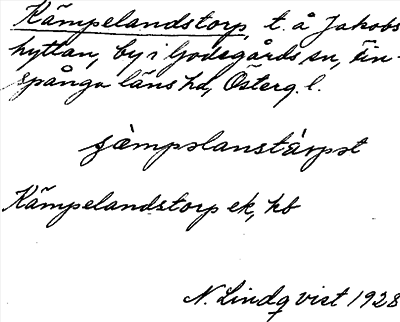 Kämpelandstorp, t. å Jakobs
hyttan, by i Godegårds sn, Fin-
spånga läns hd, Österg. l.
jàmpəlanstárpət
Kämpelandstorp ek, hb
N. Lindqvist 1928